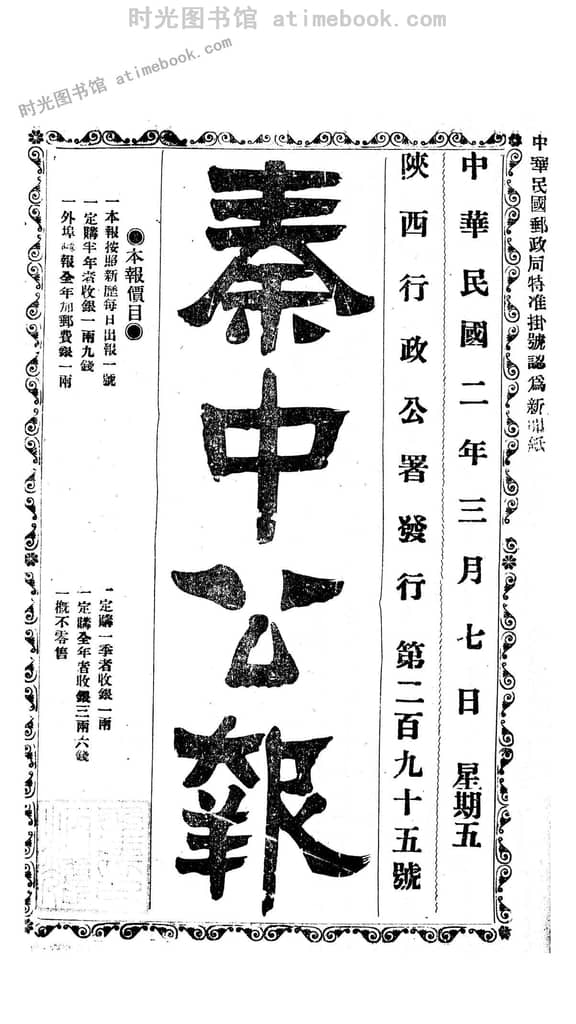 时光图书馆 atimebook.com
时光图书馆 atimebook.com
中華民國郵政局特准掛號認爲新聞紙
中華民國二年三月七日 星期五
陝西行政公署發行 第二百九十五號
秦中公報
●本報價目●
一本報按照新歷每日出報一號
一定購一季者收銀一兩
一定購半年者收銀一兩九錢
一定購全年者收銀三兩六錢
一外埠 報全年加郵費銀一兩
一概不零售